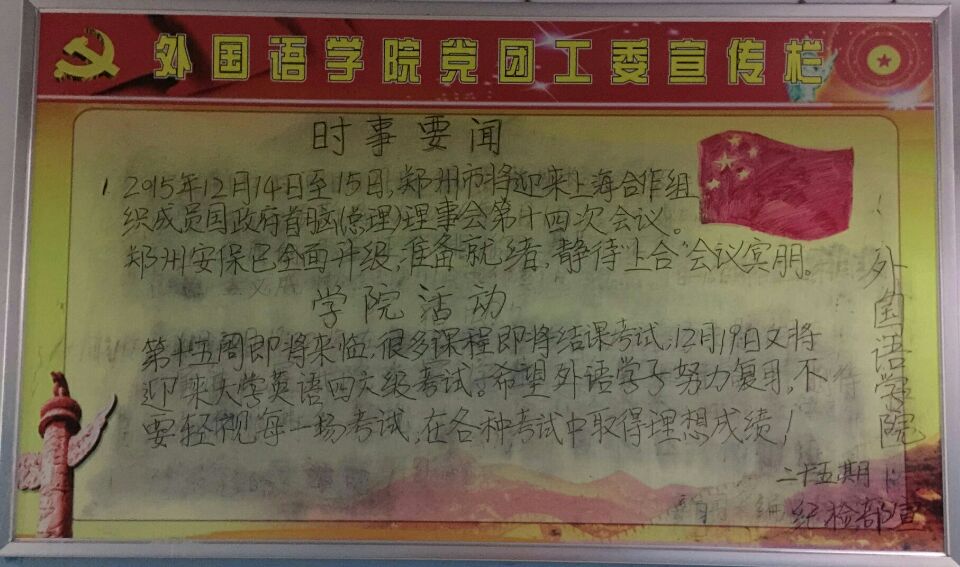 外国语学院党团工委宣传栏
时事要闻
1 2015年12月14日至15日,郑州市将迎来上海合作组
织成员国政府首脑(总理)理事会第十四次会议。
郑州安保已全面升级,准备就绪,静待"上合"会议宾朋。
学院活动
第十五周即将来临,很多课程即将结课考试,12月19日又将
迎来大学英语四六级考试。希望外语学子努力复习,不
要轻视每一场考试,在各种考试中取得理想成绩!
外国语学院
二十五期
纪检部宣